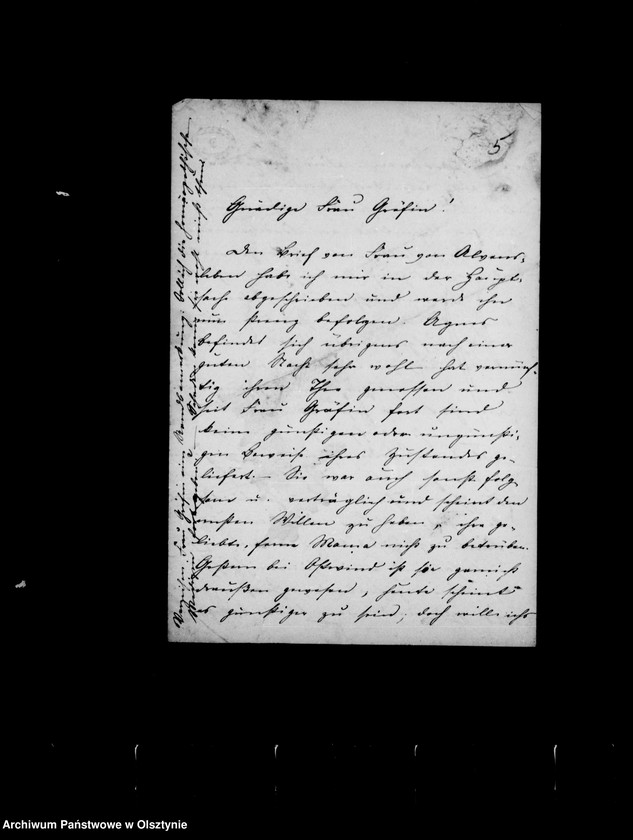 5
Gnädige Frau Gräfin!
Den Brief von Frau von Alvens-
leben habe ich mir in der Haupt-
sache abgeschrieben und werde ihn
nun streng befolgen. Agnes
befindet sich übrigens nach einer
guten Nacht sehr wohl hat vernünf-
tig ihren Thee genossen und
seit Frau Gräfin fort sind
keine günstigen oder ungünsti-
gen Beweise ihres Zustandes ge-
liefert. – Sie war auch sonst folg-
sam u. verträglich und scheint den
ersten Willen zu haben, ihre ge-
liebte, ferne Mama nicht zu betrüben.
Gestern bei Ostwind ist sie garnicht
draußen gewesen, heute scheint
es günstiger zu sein; doch will ichs
Verzeihen Frau Gräfin eine Randbemerkung: die homöopathische
Medizin nicht